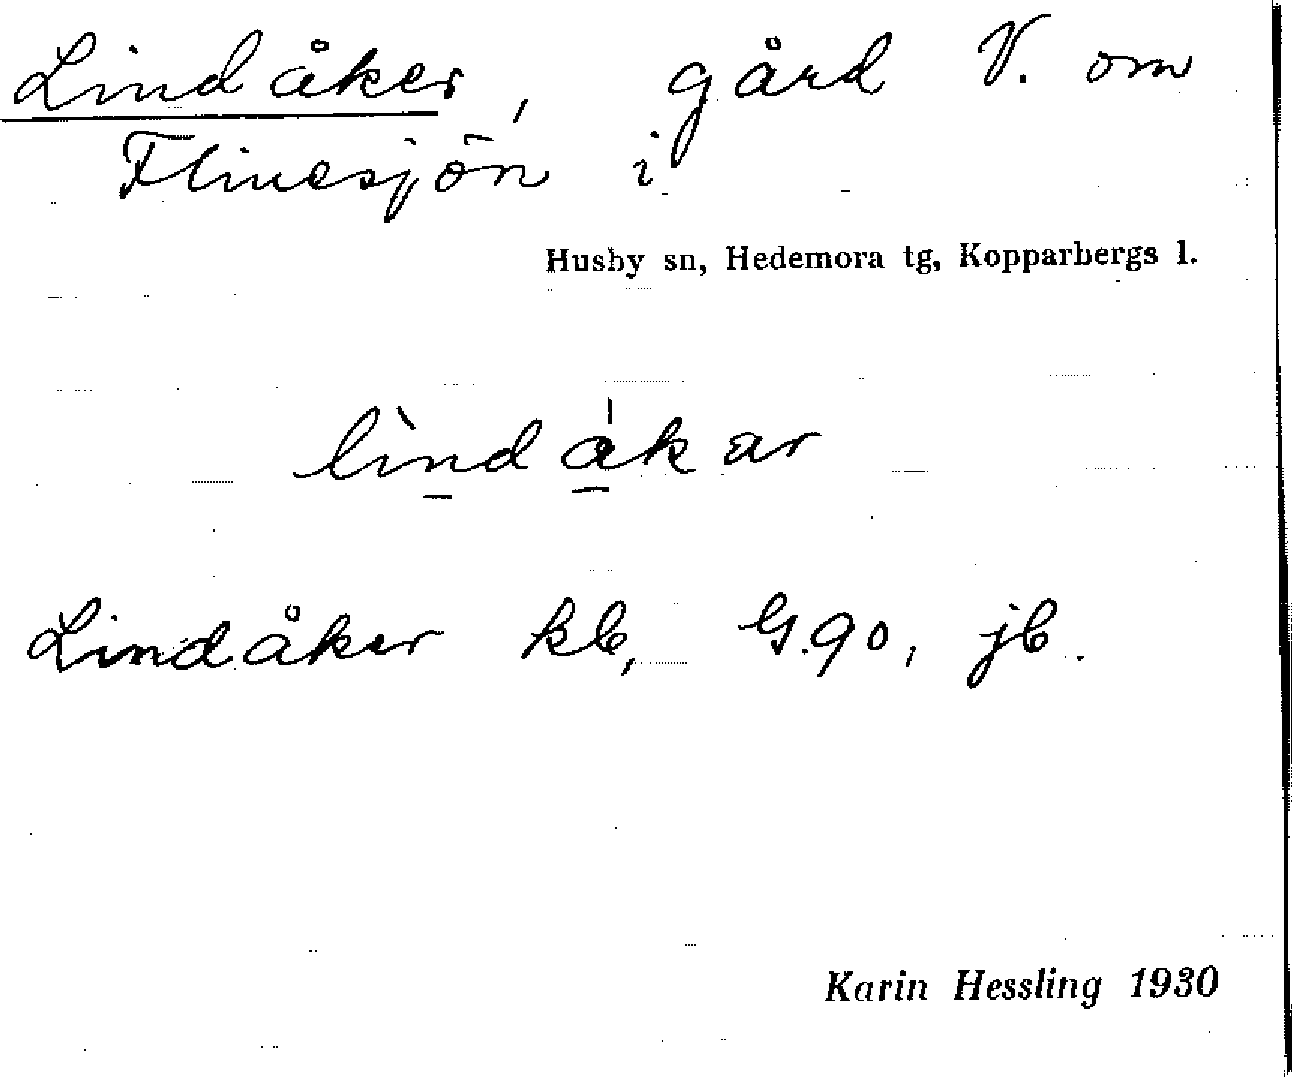 Lindåker, gård V. om
Flinesjön i
Husby sn, Hedemora tg, Kopparbergs l.
lìndåkar
Lindåker kb, G.90, jb.
Karin Hessling 1930